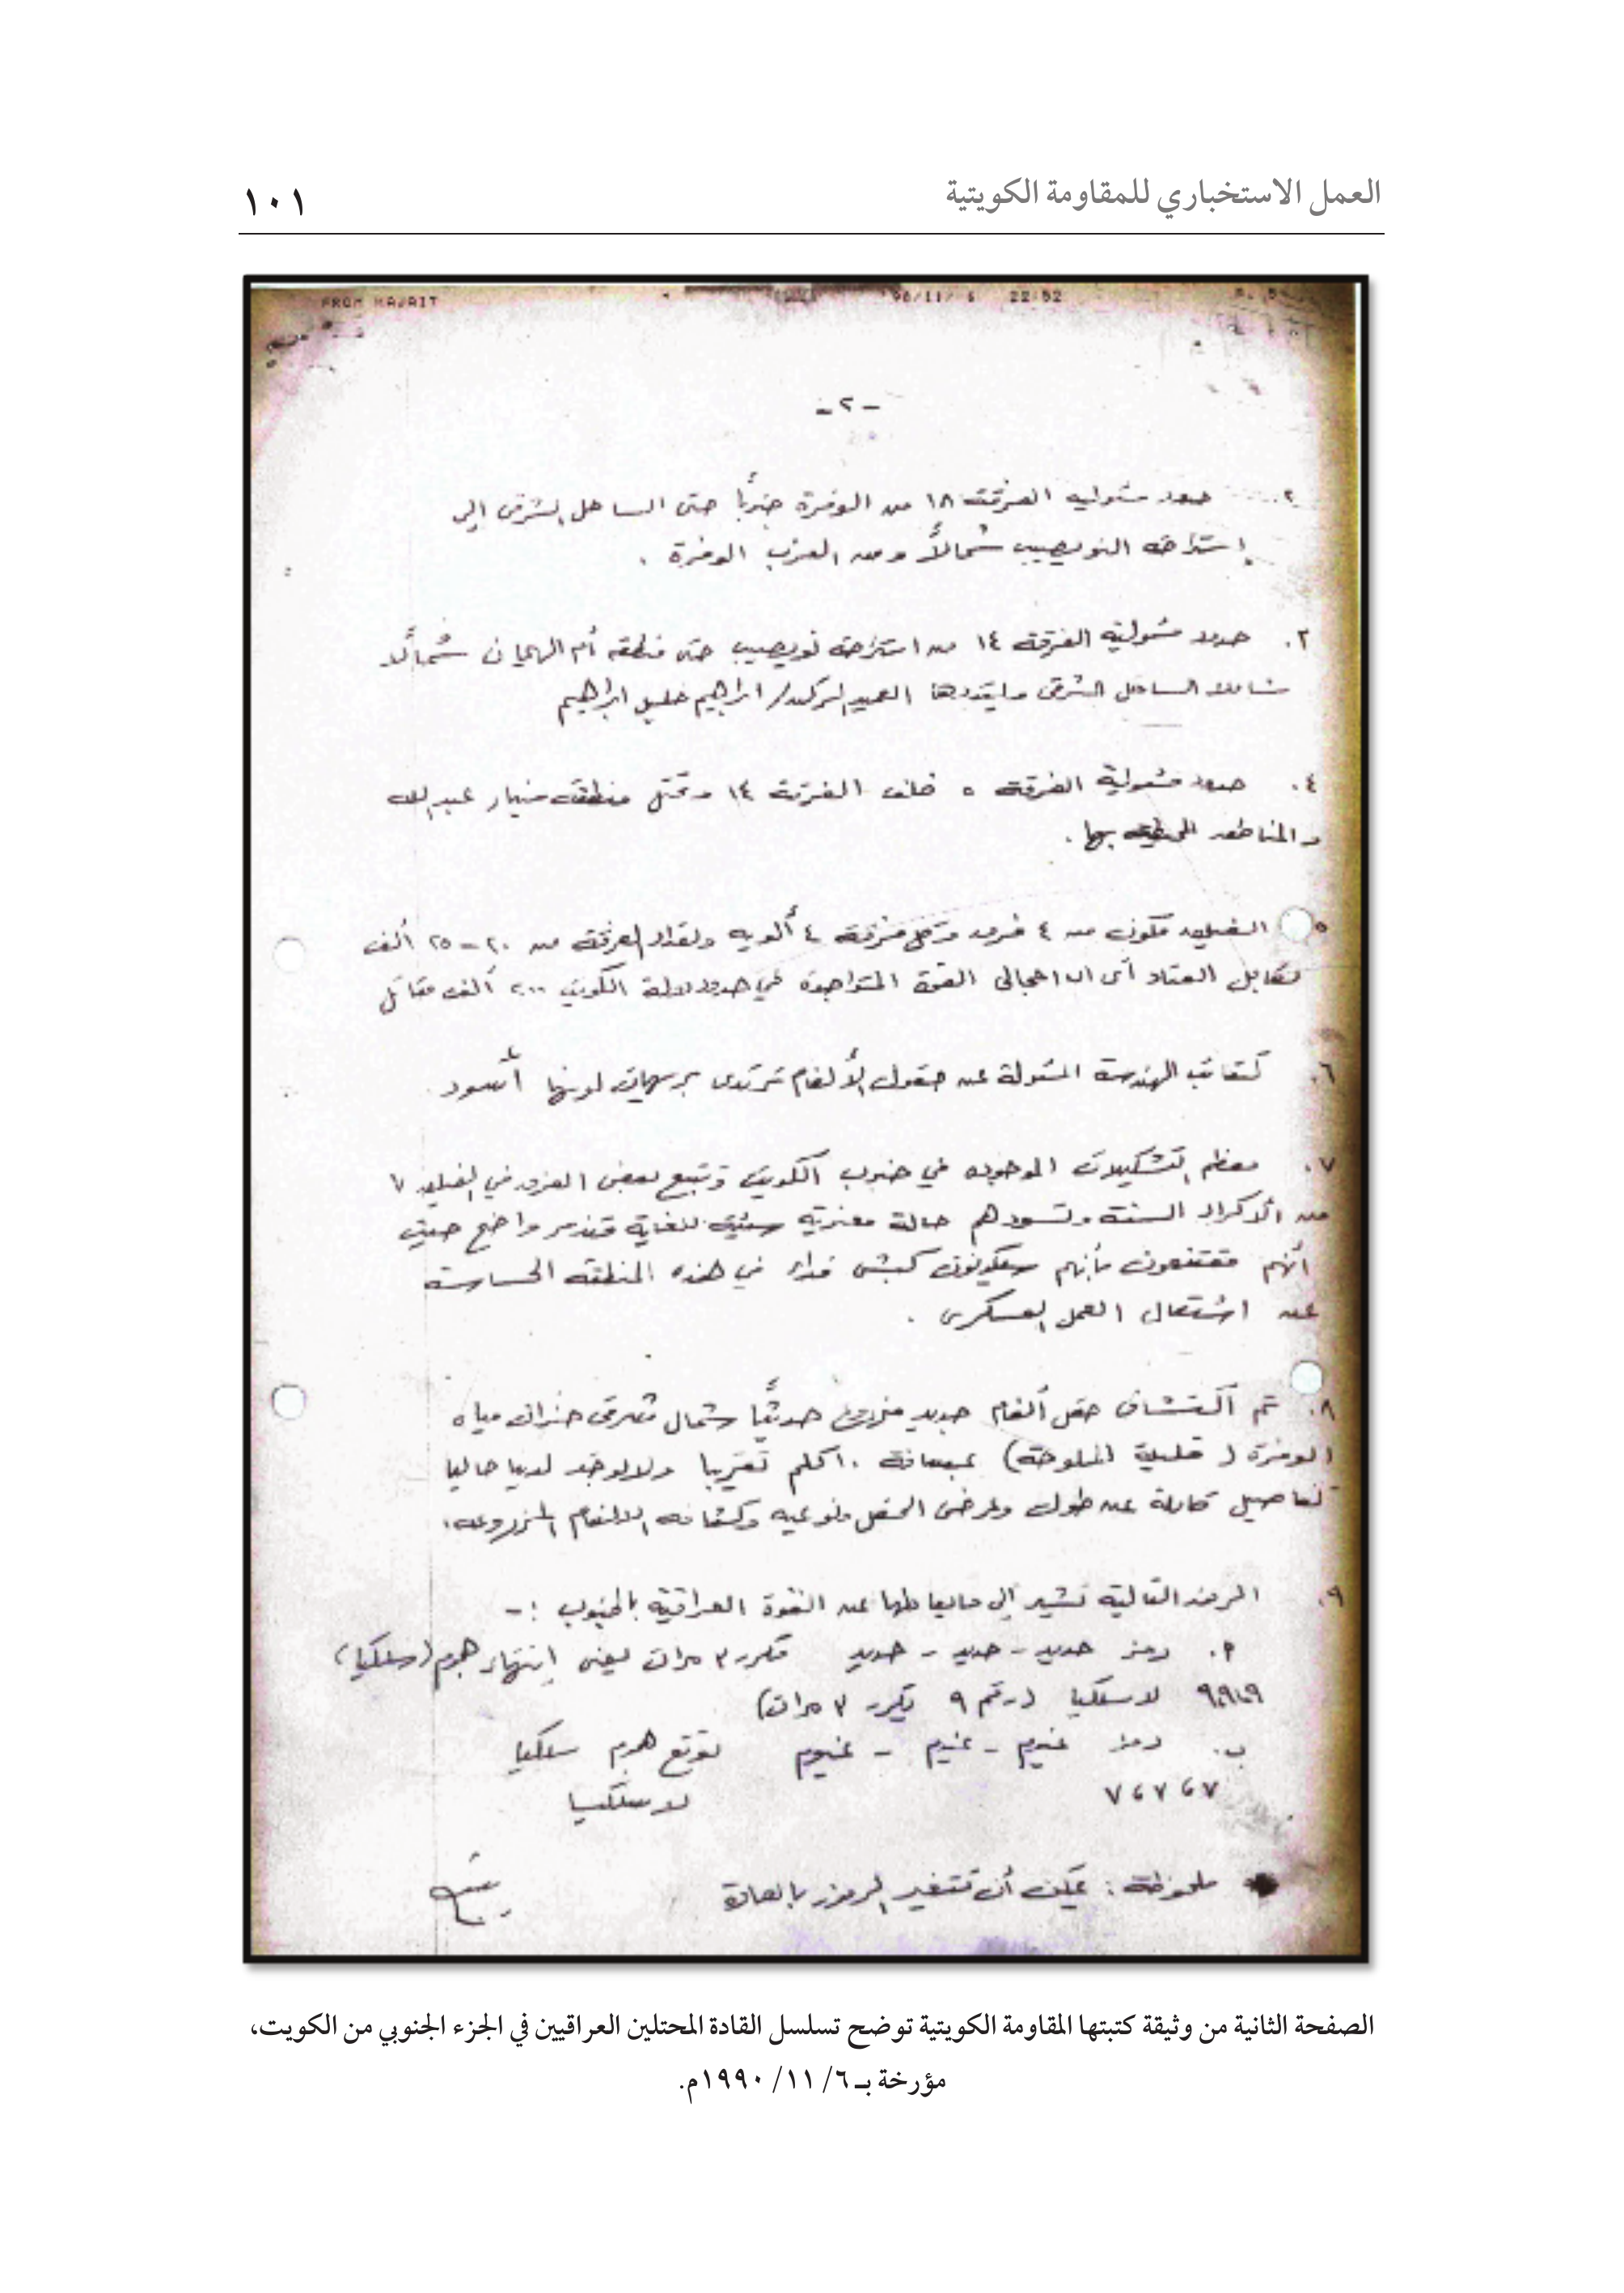 العمل الاستخباري للمقاومة الكويتية
١٠١
FROM
90/11/ 6 22:52
-٢-
٢. حدود مسئولية الفرقة ١٨ من الوفرة جنوبًا حتى الساحل الشرقى إلى
إستراحة النويصيب شمالاً ومن الغرب الوفرة .
٣. حدود مسئولية الفرقة ١٤ من استراحة نويصيب حتى منطقة أم الهيمان شمالًا
شاملا الساحل الشرقى العميد الركن/ ابراهيم خليل ابراهيم
٤. حدود مسئولية الفرقة ٥ خلف الفرقة ١٤ وتحتل منطقة ميناء عبدالله
والمناطق المحيطة بها.
٥ الفيلق مكون من ٤ فرق وكل فرقة ٤ ألوية وتعداد الفرقة من ٢٠-٢٥ ألف
بكامل العتاد أى ان اجمالى القوة المتواجدة في حدود دولة الكويت ٢٠٠ ألف مقاتل
٦. كتائب الهندسة المسئولة عن حقول الألغام ترتدى بريهات لونها أسود
٧. معظم التشكيلات الموجودة في جنوب الكويت وتتبع بعض الفرق في الفيلق ٧
من الأكراد السنة وتسودهم حالة معنوية سيئة للغاية وتذمر واضح حيث
أنهم مقتنعون بأنهم سيكونون كبش فداء في هذه المنطقة الحساسة
عند اشتعال العمل العسكرى .
٨. تم اكتشاف حقل ألغام جديد مزروع حديثًا شمال شرقى خزان مياه
الوفرة ( قليلة الملوحة) بمسافة ١٠كلم تقريبا ولا يوجد لدينا حاليا
تفاصيل كاملة عن طول وعرض الحقل ونوعية وكثافة الالغام المزروعة.
٩. الرموز التالية تشير إلى ما يعاطها عن القوة العراقية بالجنوب :-
٢. رمز حديد - حديد - حديد مكرر ٣ مرات يعنى إنتهاء هجوم (سلكيا)
٩،٩،٩ لاسلكيا (رقم ٩ تكرر ٣ مرات)
ب. رمز غيوم - غيوم - غيوم توقع هجوم سلكيا
٧،٧،٧ لاسلكيا
ملحوظة : يمكن أن تتغير الرموز بالعادة
الصفحة الثانية من وثيقة كتبتها المقاومة الكويتية توضح تسلسل القادة المحتلين العراقيين في الجزء الجنوبي من الكويت،
مؤرخة بـ ٦/ ١١/ ١٩٩٠م.